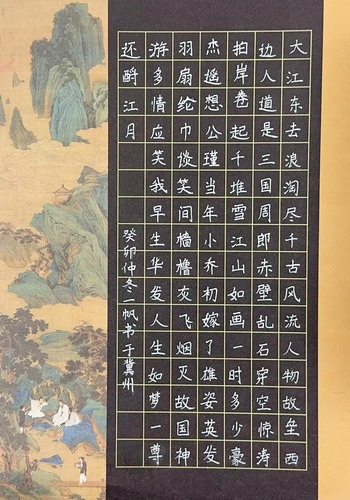 大江东去浪淘尽千古风流人物故垒西
边人道是三国周郎赤壁乱石穿空惊涛
拍岸卷起千堆雪江山如画一时多少豪
杰遥想公瑾当年小乔初嫁了雄姿英发
羽扇纶巾谈笑间樯橹灰飞烟灭故国神
游多情应笑我早生华发人生如梦一尊
还酹江月
癸卯仲冬一帆书于冀州